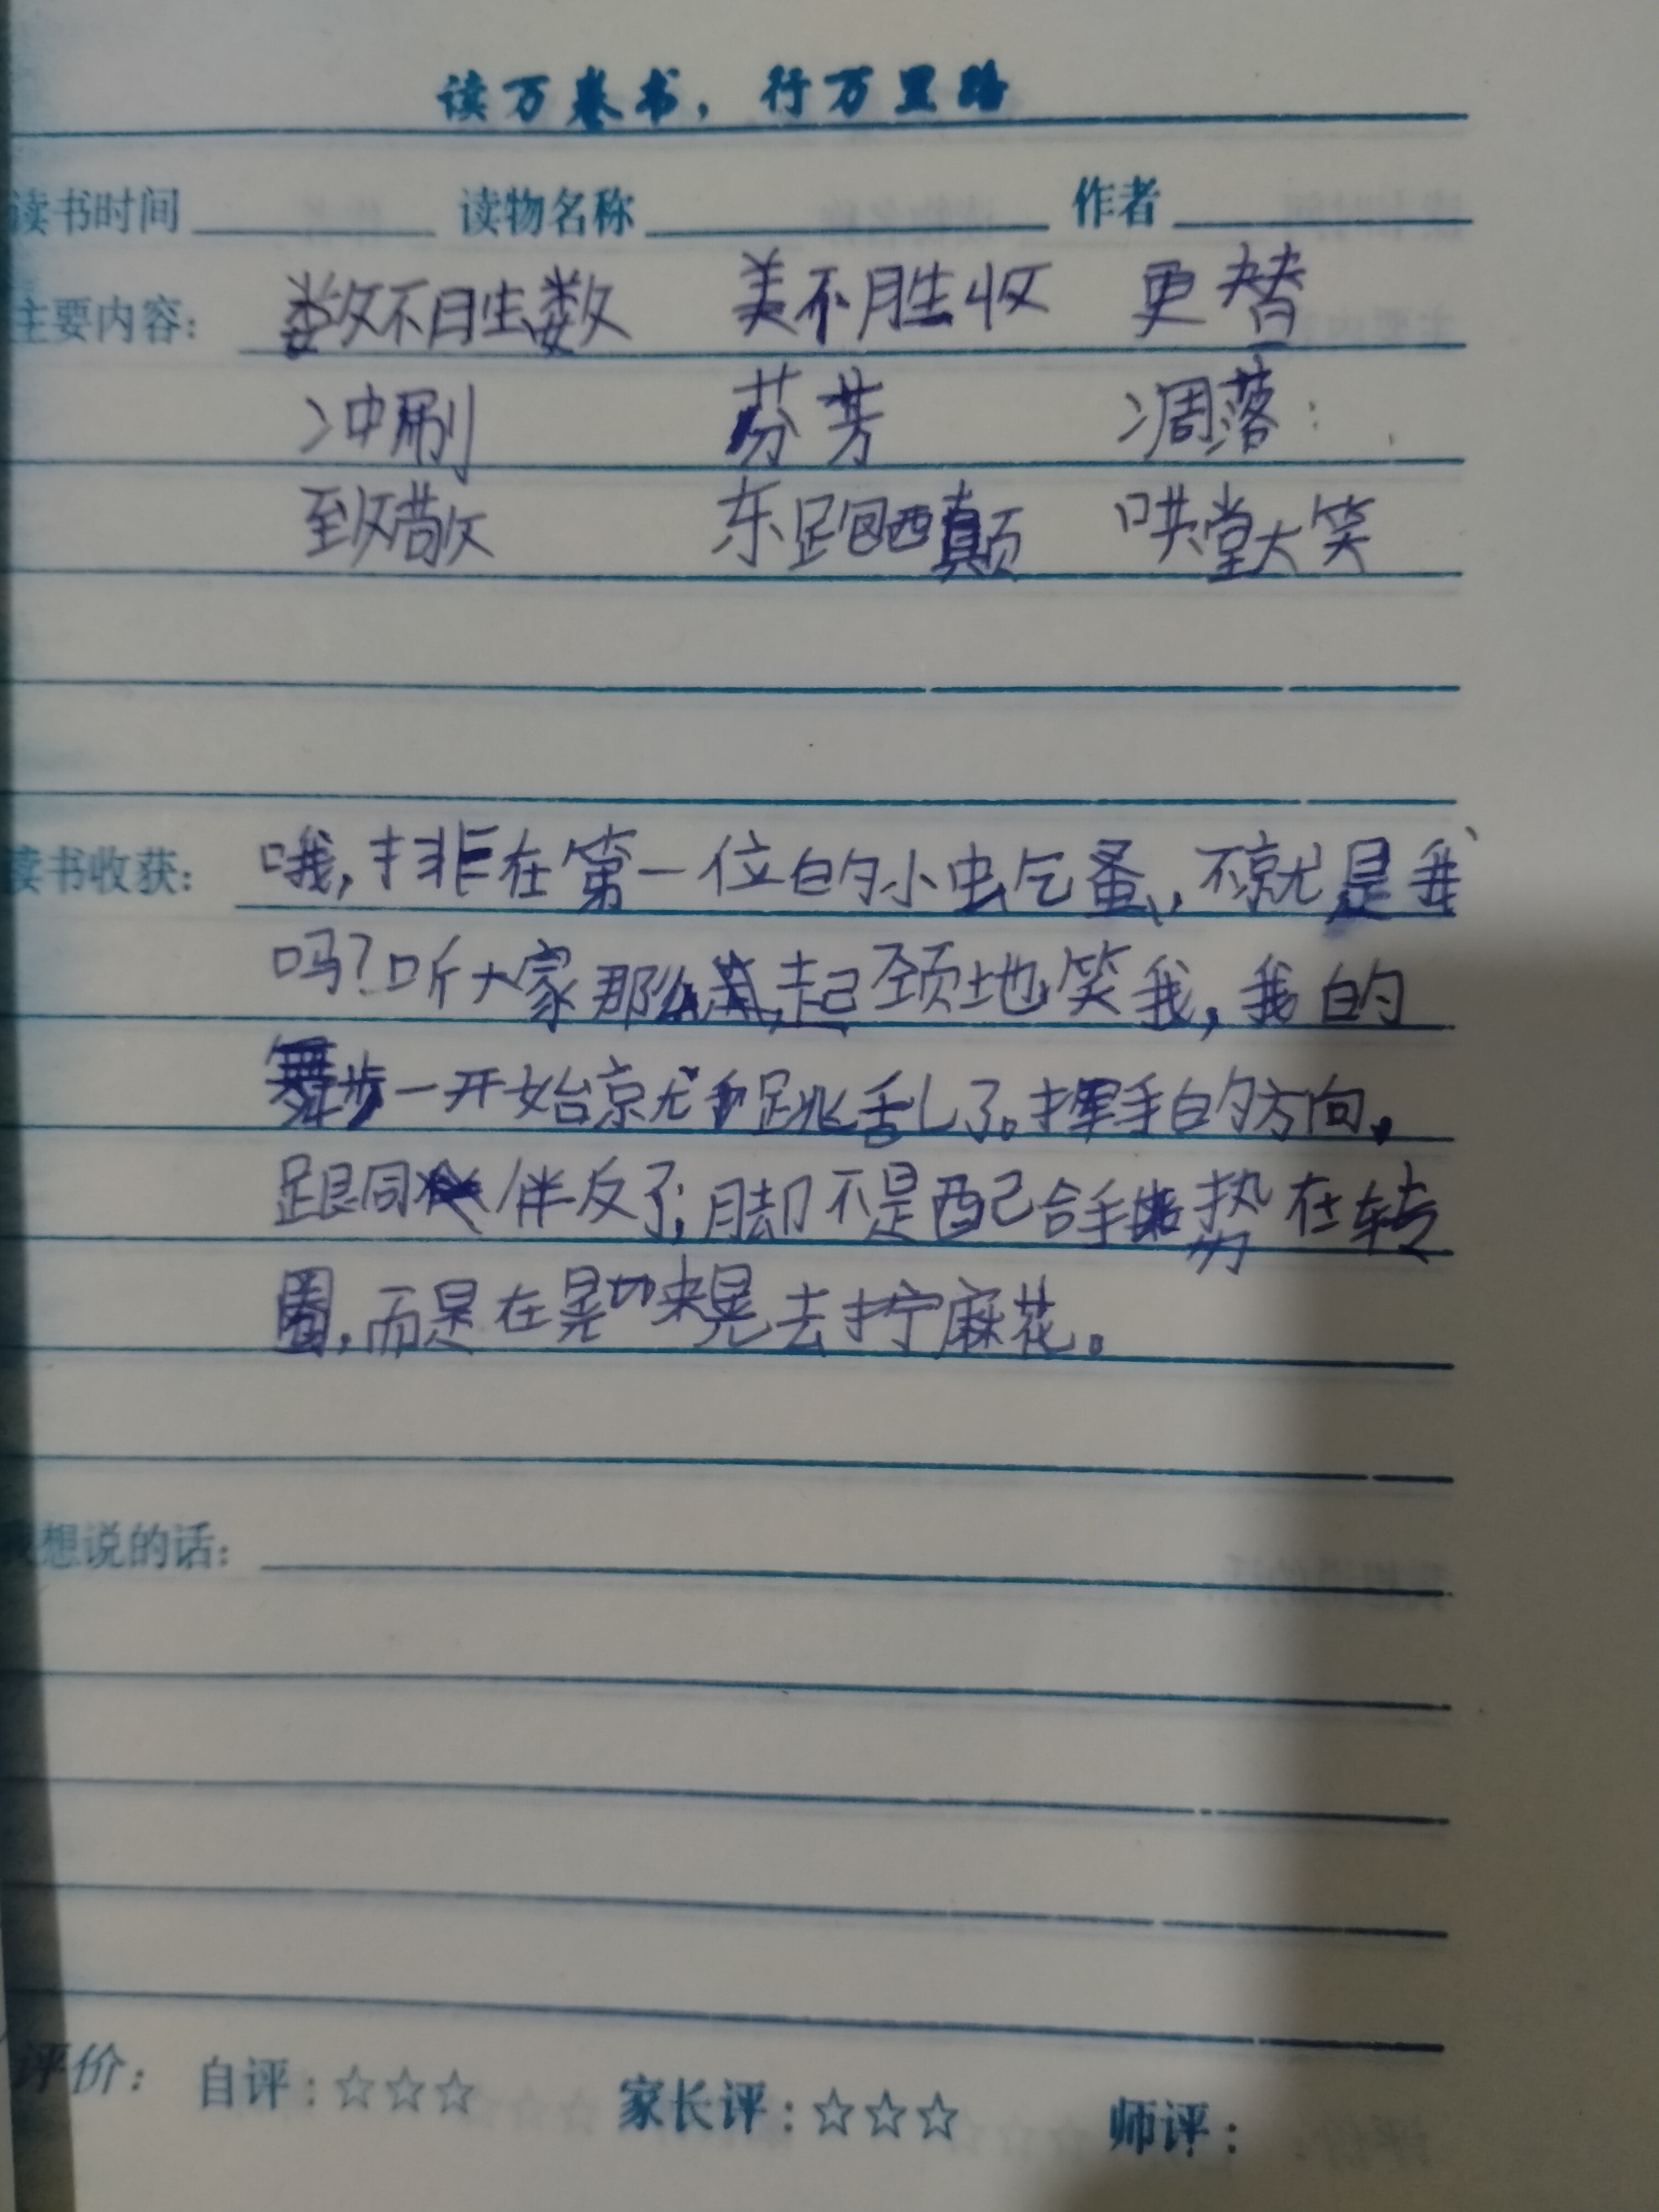 读万卷书，行万里路
读书时间 读物名称 作者
主要内容： 数不胜数 美不胜收 更替
冲刷 芬芳 凋落
致敬 东跑西颠 哄堂大笑
读书收获： 哦，排在第一位的小虫乞蚤，不就是我
吗？听大家那么起颈地笑我，我的
舞步一开始就跳乱了。挥手的方向，
跟同伴反了；脚不是配合手势在转
圈，而是在晃来晃去拧麻花。
我想说的话：
评价： 自评：☆☆☆ 家长评：☆☆☆ 师评：